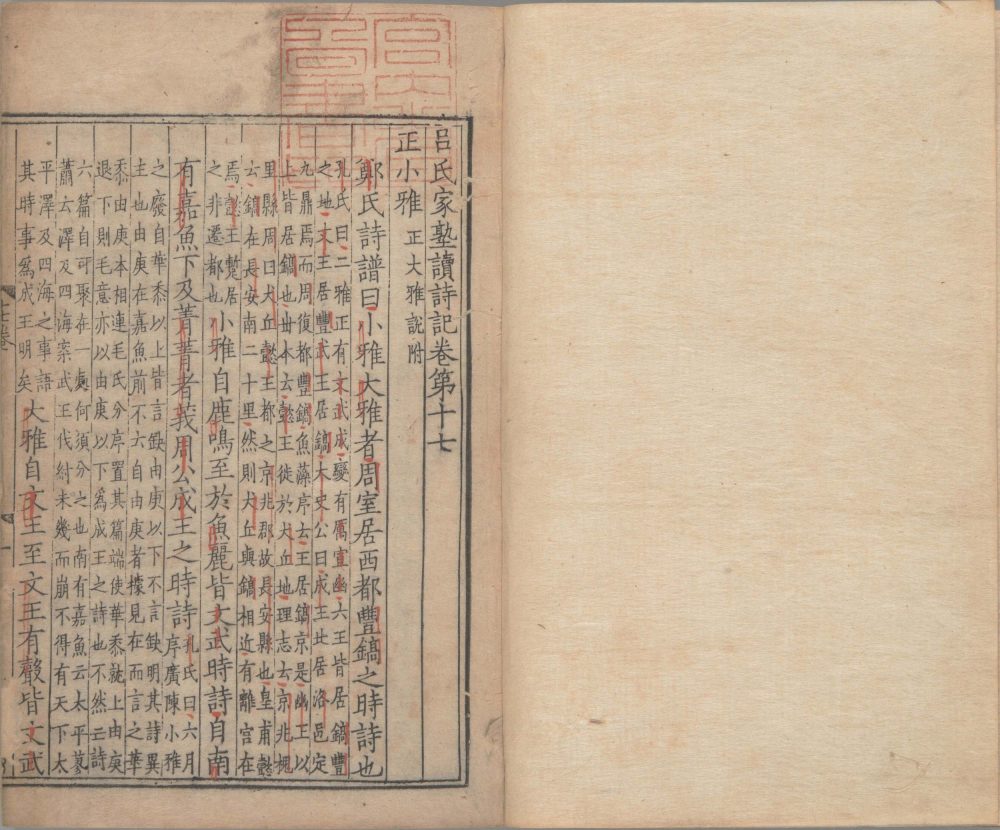 呂氏家塾讀詩記卷第十七
正小雅 正大雅說附
鄭氏詩譜曰小雅大雅者周室居西都豐鎬之時詩也
孔氏曰二雅正有文武成變有厲宣幽六王皆居鎬豐
之地文王居豐武王居鎬大史公曰成王北居洛邑定
九鼎焉而周復都豐鎬魚藻序云王居鎬京是幽王以
上皆居鎬也丗本云懿王徙於犬丘地理志云京兆槐
里縣周曰犬丘懿王都之京兆郡故長安縣也皇甫謐
云鎬在長安南二十里然則犬丘與鎬相近有離宮在
焉懿王蹔居
之非遷都也
小雅自鹿鳴至於魚麗皆文武時詩自南
有嘉魚下及菁菁者莪周公成王之時詩
孔氏曰六月
序廣陳小雅
之廢自華黍以上皆言缺由庚以下不言缺明其詩異
主也由庚在嘉魚前不云自由庚者據見在而言之華
黍由庚本相連毛氏分序置其篇端使華黍就上由庚
退下則毛意亦以由庚以下爲成王之詩也不然云詩
六篇自可聚在一處何須分之也南有嘉魚云太平蓼
蕭云澤及四海案武王伐紂未幾而崩不得有天下太
平澤及四海之事語
其時事爲成王明矣
大雅自文王至文王有聲皆文武